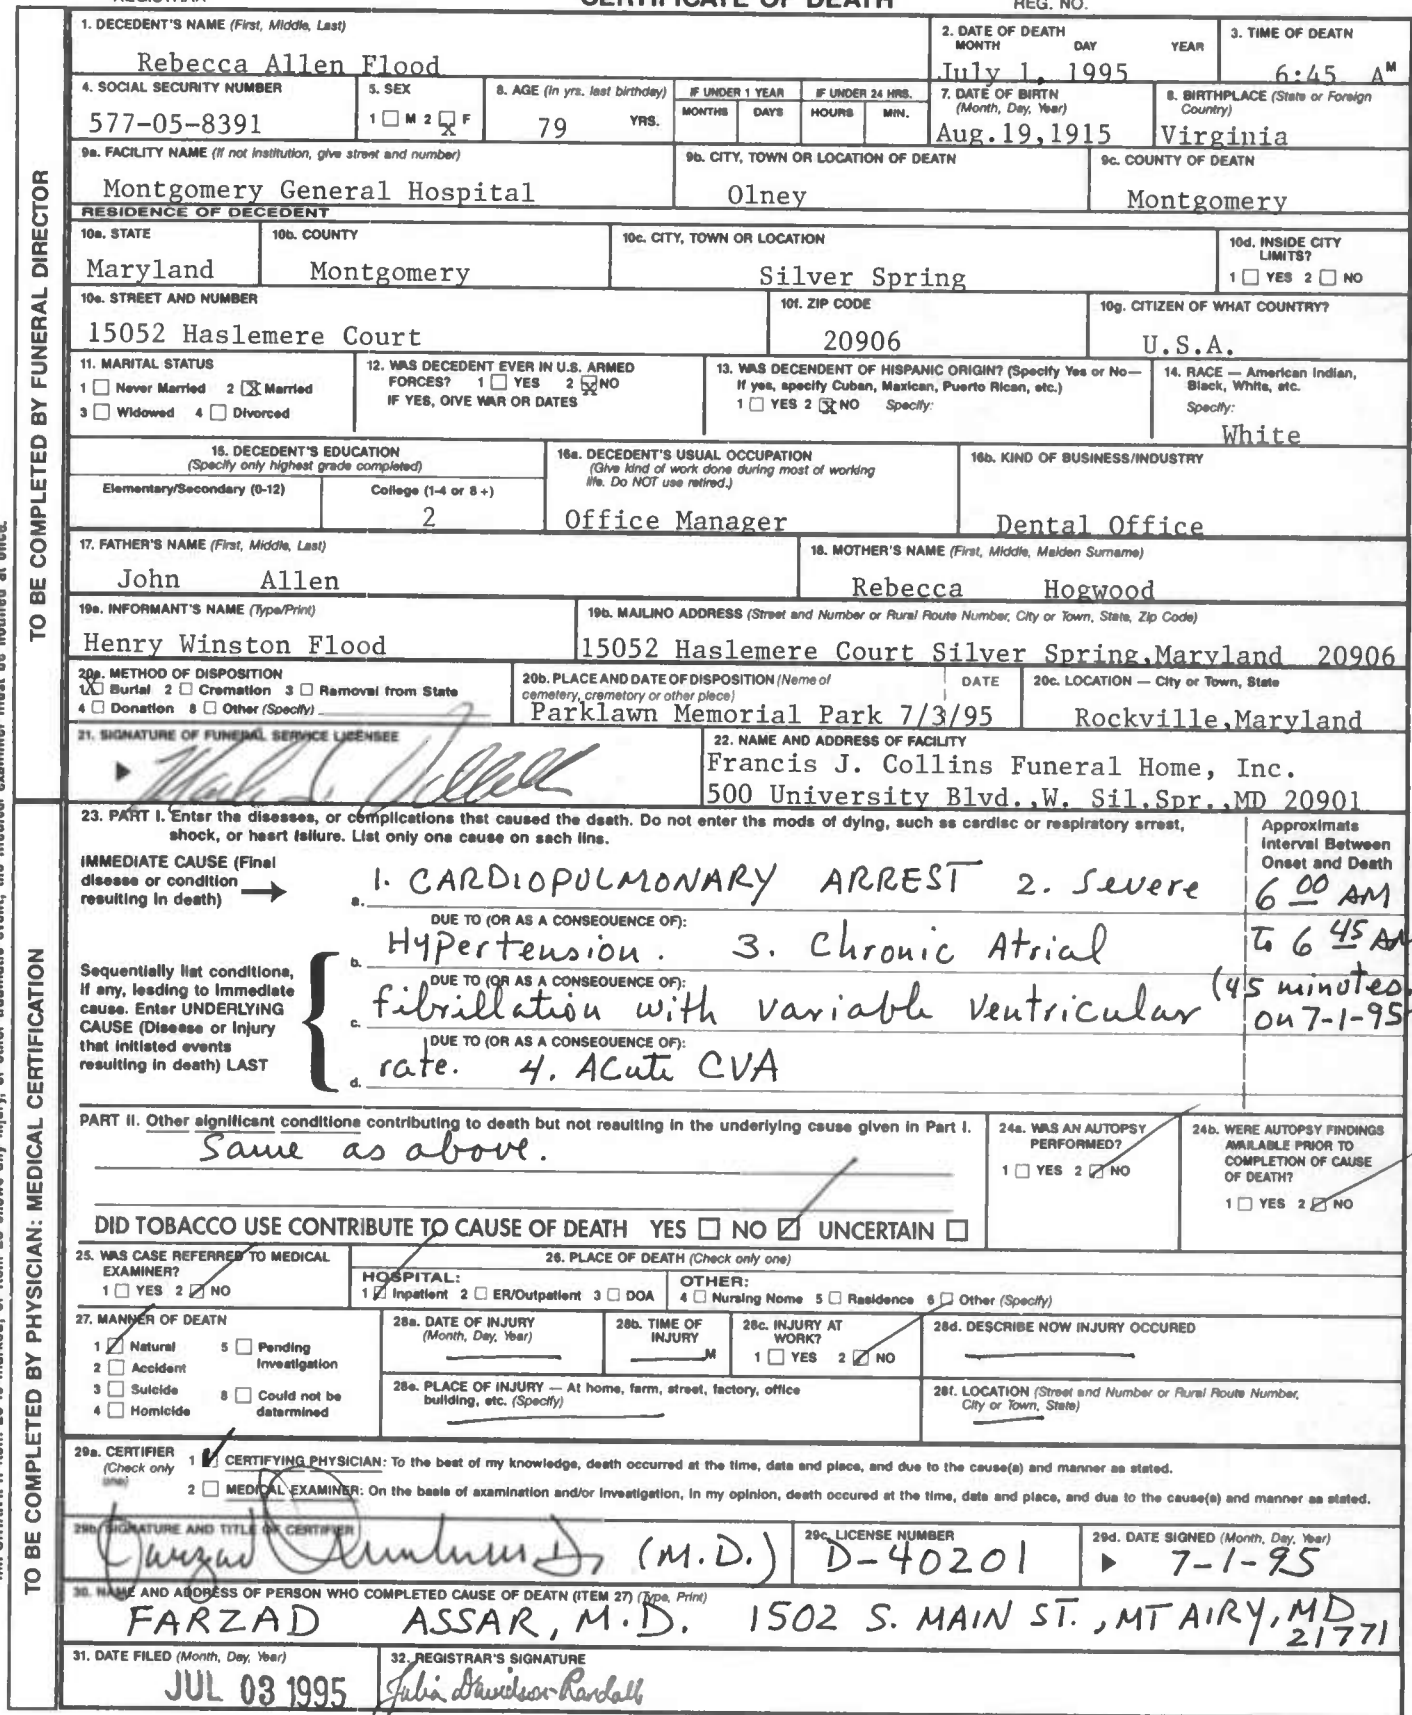 CERTIFICATE OF DEATH
REG. NO.
1. DECEDENT'S NAME (First, Middle, Last)
Rebecca Allen Flood
2. DATE OF DEATH
MONTH DAY YEAR
July 1, 1995
3. TIME OF DEATH
6:45 A M
4. SOCIAL SECURITY NUMBER
577-05-8391
5. SEX
1 M 2 F
X
6. AGE (In yrs. last birthday)
79 YRS.
IF UNDER 1 YEAR
MONTHS DAYS
IF UNDER 24 HRS.
HOURS MIN.
7. DATE OF BIRTH
(Month, Day, Year)
Aug.19,1915
8. BIRTHPLACE (State or Foreign
Country)
Virginia
9a. FACILITY NAME (If not institution, give street and number)
Montgomery General Hospital
9b. CITY, TOWN OR LOCATION OF DEATH
Olney
9c. COUNTY OF DEATH
Montgomery
RESIDENCE OF DECEDENT
10a. STATE
Maryland
10b. COUNTY
Montgomery
10c. CITY, TOWN OR LOCATION
Silver Spring
10d. INSIDE CITY
LIMITS?
1 YES 2 NO
10e. STREET AND NUMBER
15052 Haslemere Court
10f. ZIP CODE
20906
10g. CITIZEN OF WHAT COUNTRY?
U.S.A.
11. MARITAL STATUS
1 Never Married 2 X Married
3 Widowed 4 Divorced
12. WAS DECEDENT EVER IN U.S. ARMED
FORCES? 1 YES 2 X NO
IF YES, GIVE WAR OR DATES
13. WAS DECENDENT OF HISPANIC ORIGIN? (Specify Yes or No—
If yes, specify Cuban, Mexican, Puerto Rican, etc.)
1 YES 2 X NO Specify:
14. RACE — American Indian,
Black, White, etc.
Specify:
White
15. DECEDENT'S EDUCATION
(Specify only highest grade completed)
Elementary/Secondary (0-12)
College (1-4 or 5+)
2
16a. DECEDENT'S USUAL OCCUPATION
(Give kind of work done during most of working
life. Do NOT use retired.)
Office Manager
16b. KIND OF BUSINESS/INDUSTRY
Dental Office
17. FATHER'S NAME (First, Middle, Last)
John Allen
18. MOTHER'S NAME (First, Middle, Maiden Surname)
Rebecca Hogwood
19a. INFORMANT'S NAME (Type/Print)
Henry Winston Flood
19b. MAILING ADDRESS (Street and Number or Rural Route Number, City or Town, State, Zip Code)
15052 Haslemere Court Silver Spring,Maryland 20906
20a. METHOD OF DISPOSITION
1 X Burial 2 Cremation 3 Removal from State
4 Donation 5 Other (Specify)
20b. PLACE AND DATE OF DISPOSITION (Name of
cemetery, crematory or other place) DATE
Parklawn Memorial Park 7/3/95
20c. LOCATION — City or Town, State
Rockville,Maryland
21. SIGNATURE OF FUNERAL SERVICE LICENSEE
22. NAME AND ADDRESS OF FACILITY
Francis J. Collins Funeral Home, Inc.
500 University Blvd.,W. Sil.Spr.,MD 20901
TO BE COMPLETED BY FUNERAL DIRECTOR
23. PART I. Enter the diseases, or complications that caused the death. Do not enter the mode of dying, such as cardiac or respiratory arrest,
shock, or heart failure. List only one cause on each line.
Approximate
Interval Between
Onset and Death
IMMEDIATE CAUSE (Final
disease or condition
resulting in death)
a. 1. CARDIOPULMONARY ARREST 2. Severe
6 00 AM
DUE TO (OR AS A CONSEQUENCE OF):
b. Hypertension. 3. Chronic Atrial
To 6 45 AM
Sequentially list conditions,
if any, leading to immediate
cause. Enter UNDERLYING
CAUSE (Disease or injury
that initiated events
resulting in death) LAST
DUE TO (OR AS A CONSEQUENCE OF):
c. fibrillation with variable ventricular
(45 minutes)
on 7-1-95
DUE TO (OR AS A CONSEQUENCE OF):
d. rate. 4. Acute CVA
PART II. Other significant conditions contributing to death but not resulting in the underlying cause given in Part I.
Same as above.
24a. WAS AN AUTOPSY
PERFORMED?
1 YES 2 NO
24b. WERE AUTOPSY FINDINGS
AVAILABLE PRIOR TO
COMPLETION OF CAUSE
OF DEATH?
1 YES 2 NO
DID TOBACCO USE CONTRIBUTE TO CAUSE OF DEATH YES NO UNCERTAIN
25. WAS CASE REFERRED TO MEDICAL
EXAMINER?
1 YES 2 NO
26. PLACE OF DEATH (Check only one)
HOSPITAL:
1 Inpatient 2 ER/Outpatient 3 DOA
OTHER:
4 Nursing Home 5 Residence 6 Other (Specify)
27. MANNER OF DEATH
1 Natural 5 Pending
Investigation
2 Accident
3 Suicide 6 Could not be
determined
4 Homicide
28a. DATE OF INJURY
(Month, Day, Year)
28b. TIME OF
INJURY
M
28c. INJURY AT
WORK?
1 YES 2 NO
28d. DESCRIBE HOW INJURY OCCURED
28e. PLACE OF INJURY — At home, farm, street, factory, office
building, etc. (Specify)
28f. LOCATION (Street and Number or Rural Route Number,
City or Town, State)
29a. CERTIFIER
(Check only
one)
1 CERTIFYING PHYSICIAN: To the best of my knowledge, death occurred at the time, date and place, and due to the cause(s) and manner as stated.
2 MEDICAL EXAMINER: On the basis of examination and/or investigation, in my opinion, death occured at the time, date and place, and due to the cause(s) and manner as stated.
29b. SIGNATURE AND TITLE OF CERTIFIER
Farzad (M.D.)
29c. LICENSE NUMBER
D-40201
29d. DATE SIGNED (Month, Day, Year)
7-1-95
30. NAME AND ADDRESS OF PERSON WHO COMPLETED CAUSE OF DEATH (ITEM 27) (Type, Print)
FARZAD ASSAR, M.D. 1502 S. MAIN ST., MT AIRY, MD
21771
31. DATE FILED (Month, Day, Year)
JUL 03 1995
32. REGISTRAR'S SIGNATURE
Julia Davidson-Randall
TO BE COMPLETED BY PHYSICIAN: MEDICAL CERTIFICATION